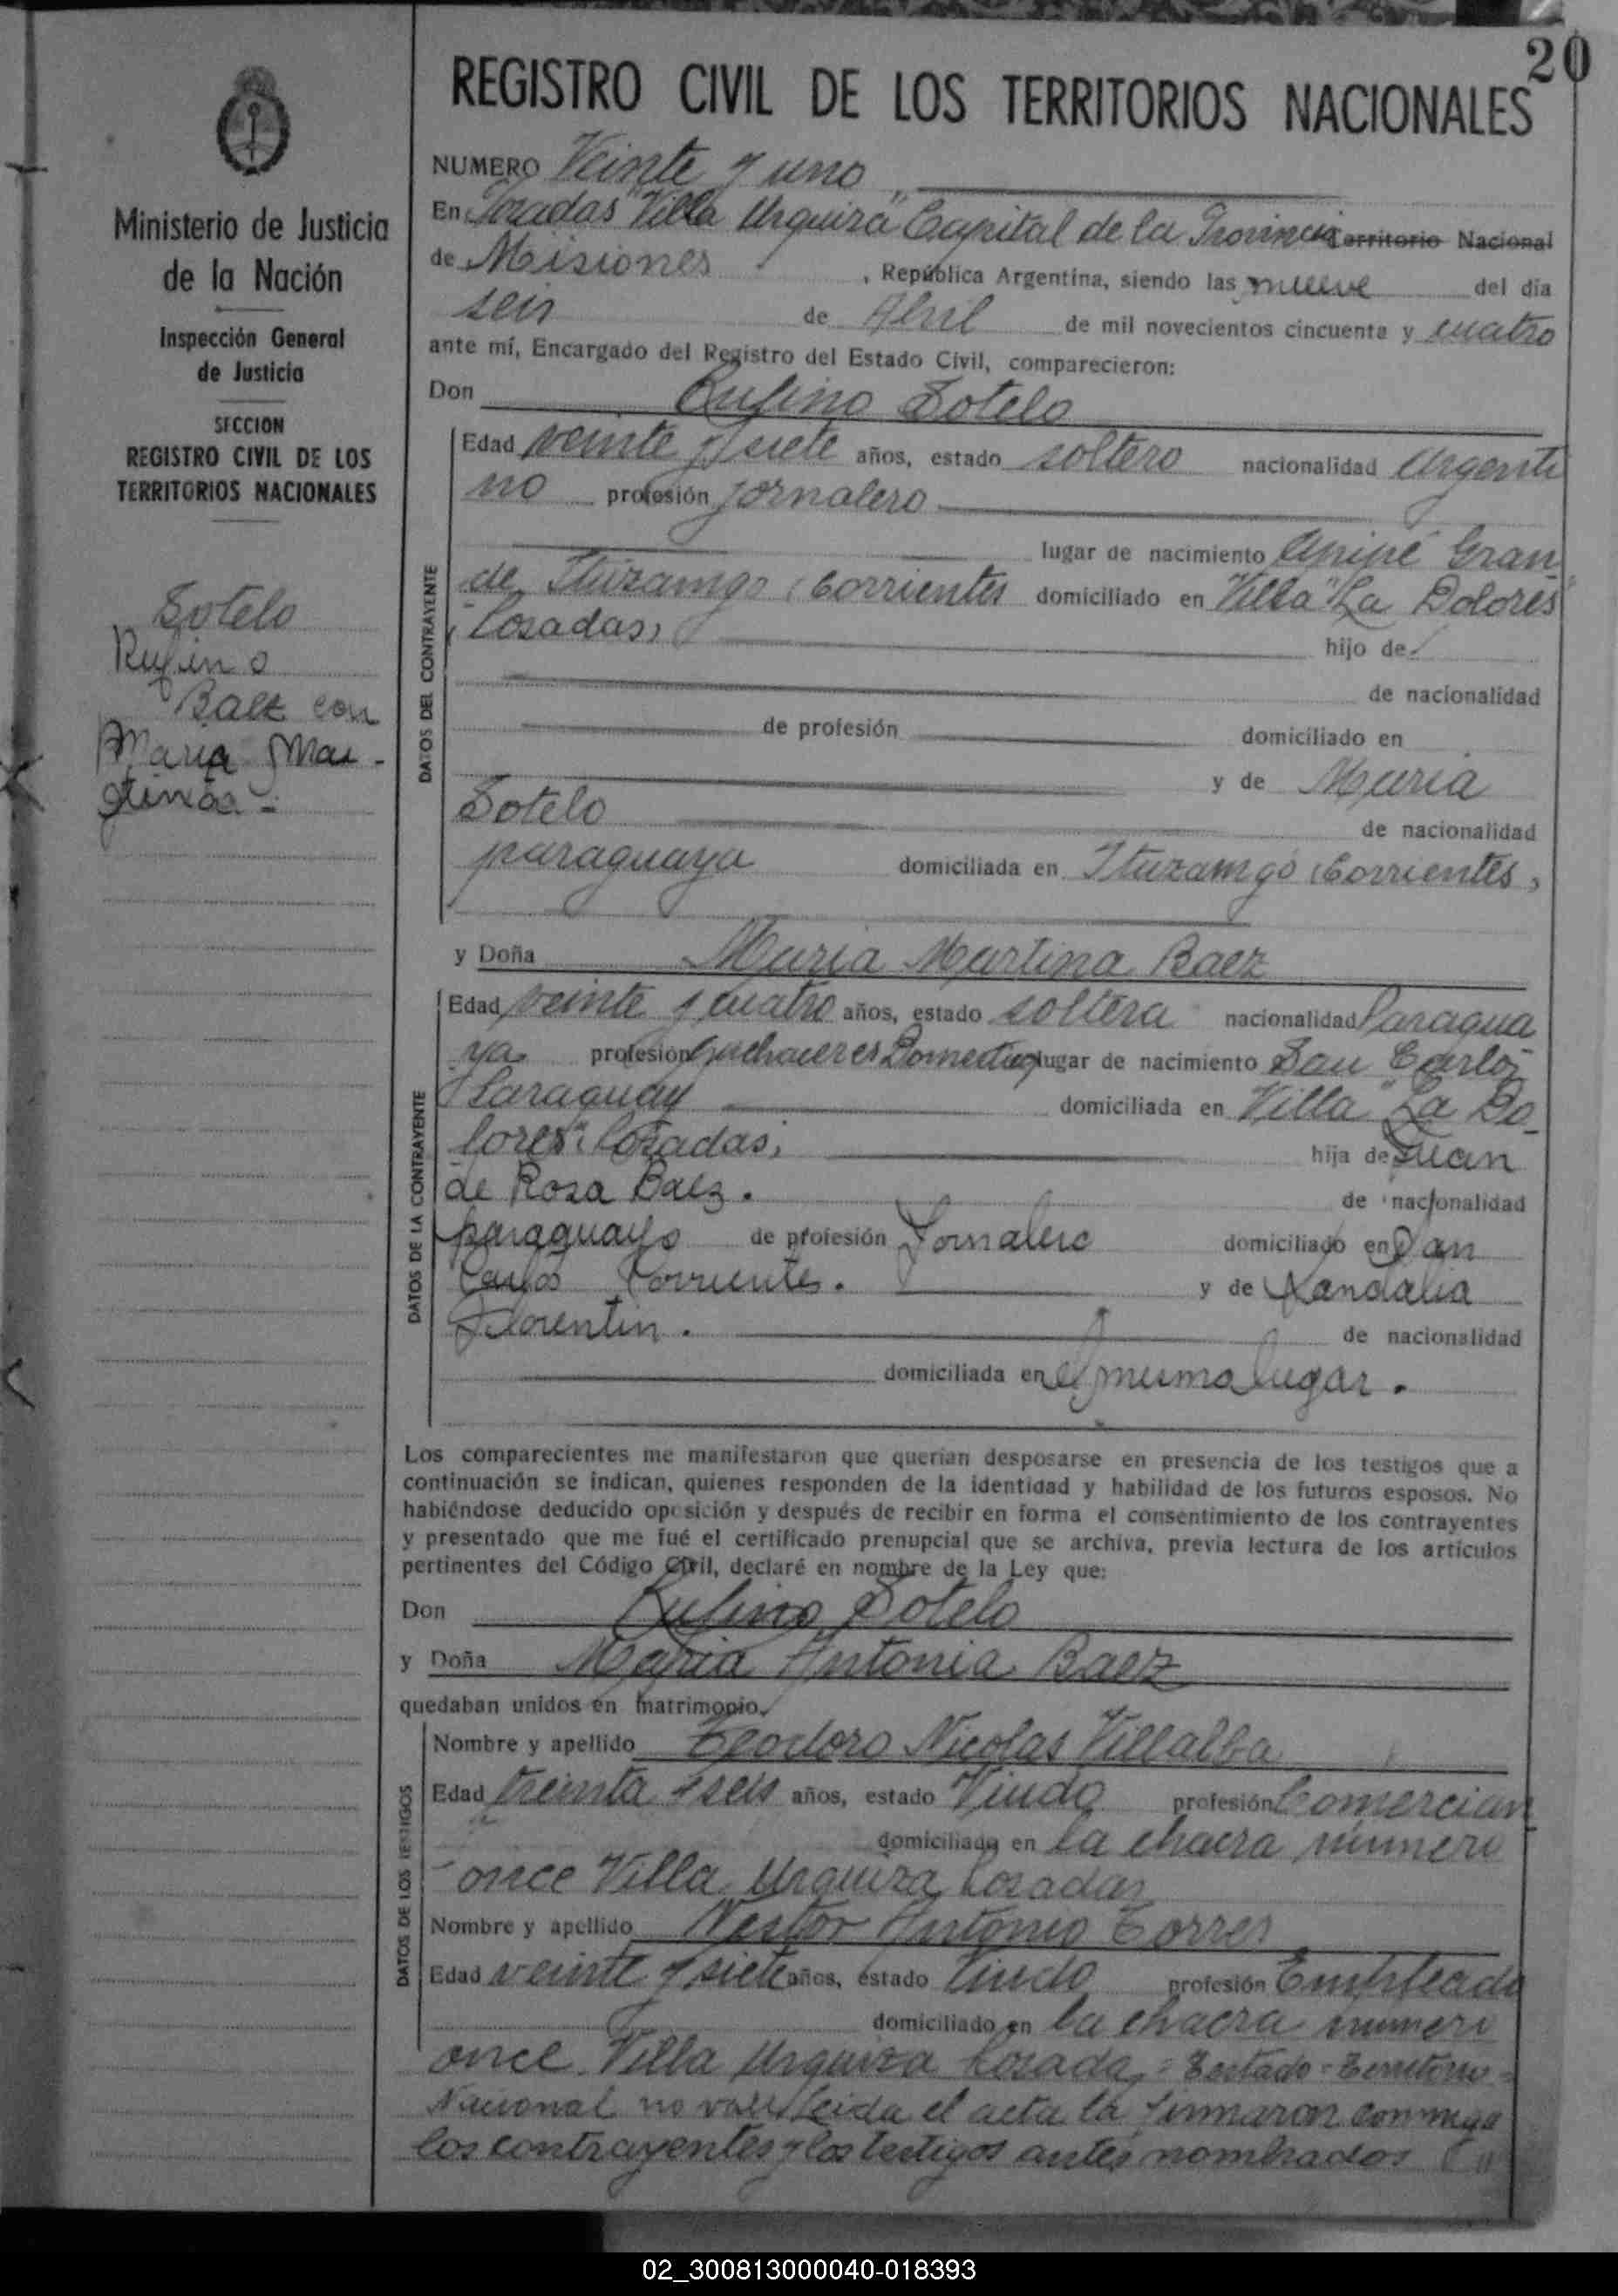 20
REGISTRO CIVIL DE LOS TERRITORIOS NACIONALES
Ministerio de Justicia
de la Nación
Inspección General
de Justicia
SECCION
REGISTRO CIVIL DE LOS
TERRITORIOS NACIONALES
Sotelo
Rufino
Baez con
Maria Mar-
tina
NUMERO Veinte y uno
En Posadas "Villa Urquiza" Capital de la Provincia Territorio Nacional
de Misiones, República Argentina, siendo las nueve del día
seis de Abril de mil novecientos cincuenta y cuatro
ante mí, Encargado del Registro del Estado Civil, comparecieron:
Don Rufino Sotelo
DATOS DEL CONTRAYENTE
Edad veinte y siete años, estado soltero nacionalidad Argenti
no profesión jornalero
lugar de nacimiento Apipé Gran
de, Ituzaingo (Corrientes domiciliado en Villa "La Dolores"
Posadas, hijo de
de nacionalidad
de profesión domiciliado en
y de Maria
Sotelo de nacionalidad
paraguaya domiciliada en Ituzaingó (Corrientes,
y Doña Maria Martina Baez
DATOS DE LA CONTRAYENTE
Edad veinte y cuatro años, estado soltera nacionalidad Paragua
ya profesión Quehaceres Domesticos lugar de nacimiento San Carlos
Paraguay domiciliada en Villa "La Do-
lores" Posadas, hija de Juan
de Rosa Baez. de nacionalidad
paraguayo de profesión Jornalero domiciliado en San
Carlos Corrientes. y de Candalia
Florentin. de nacionalidad
domiciliada en el mismo lugar.
Los comparecientes me manifestaron que querían desposarse en presencia de los testigos que a
continuación se indican, quienes responden de la identidad y habilidad de los futuros esposos. No
habiéndose deducido oposición y después de recibir en forma el consentimiento de los contrayentes
y presentado que me fué el certificado prenupcial que se archiva, previa lectura de los artículos
pertinentes del Código Civil, declaré en nombre de la Ley que:
Don Rufino Sotelo
y Doña Maria Antonia Baez
quedaban unidos en matrimonio.
DATOS DE LOS TESTIGOS
Nombre y apellido Teodoro Nicolas Villalba
Edad treinta y seis años, estado Viudo profesión Comercian
domiciliado en la chacra número
once Villa Urquiza Posadas
Nombre y apellido Nestor Antonio Torres
Edad veinte y siete años, estado Viudo profesión Empleado
domiciliado en la chacra numero
once Villa Urquiza Posadas = Testado = Territorio =
Nacional no vale. Leida el acta la firmaron conmigo
los contrayentes y los testigos antes nombrados
02_300813000040-018393